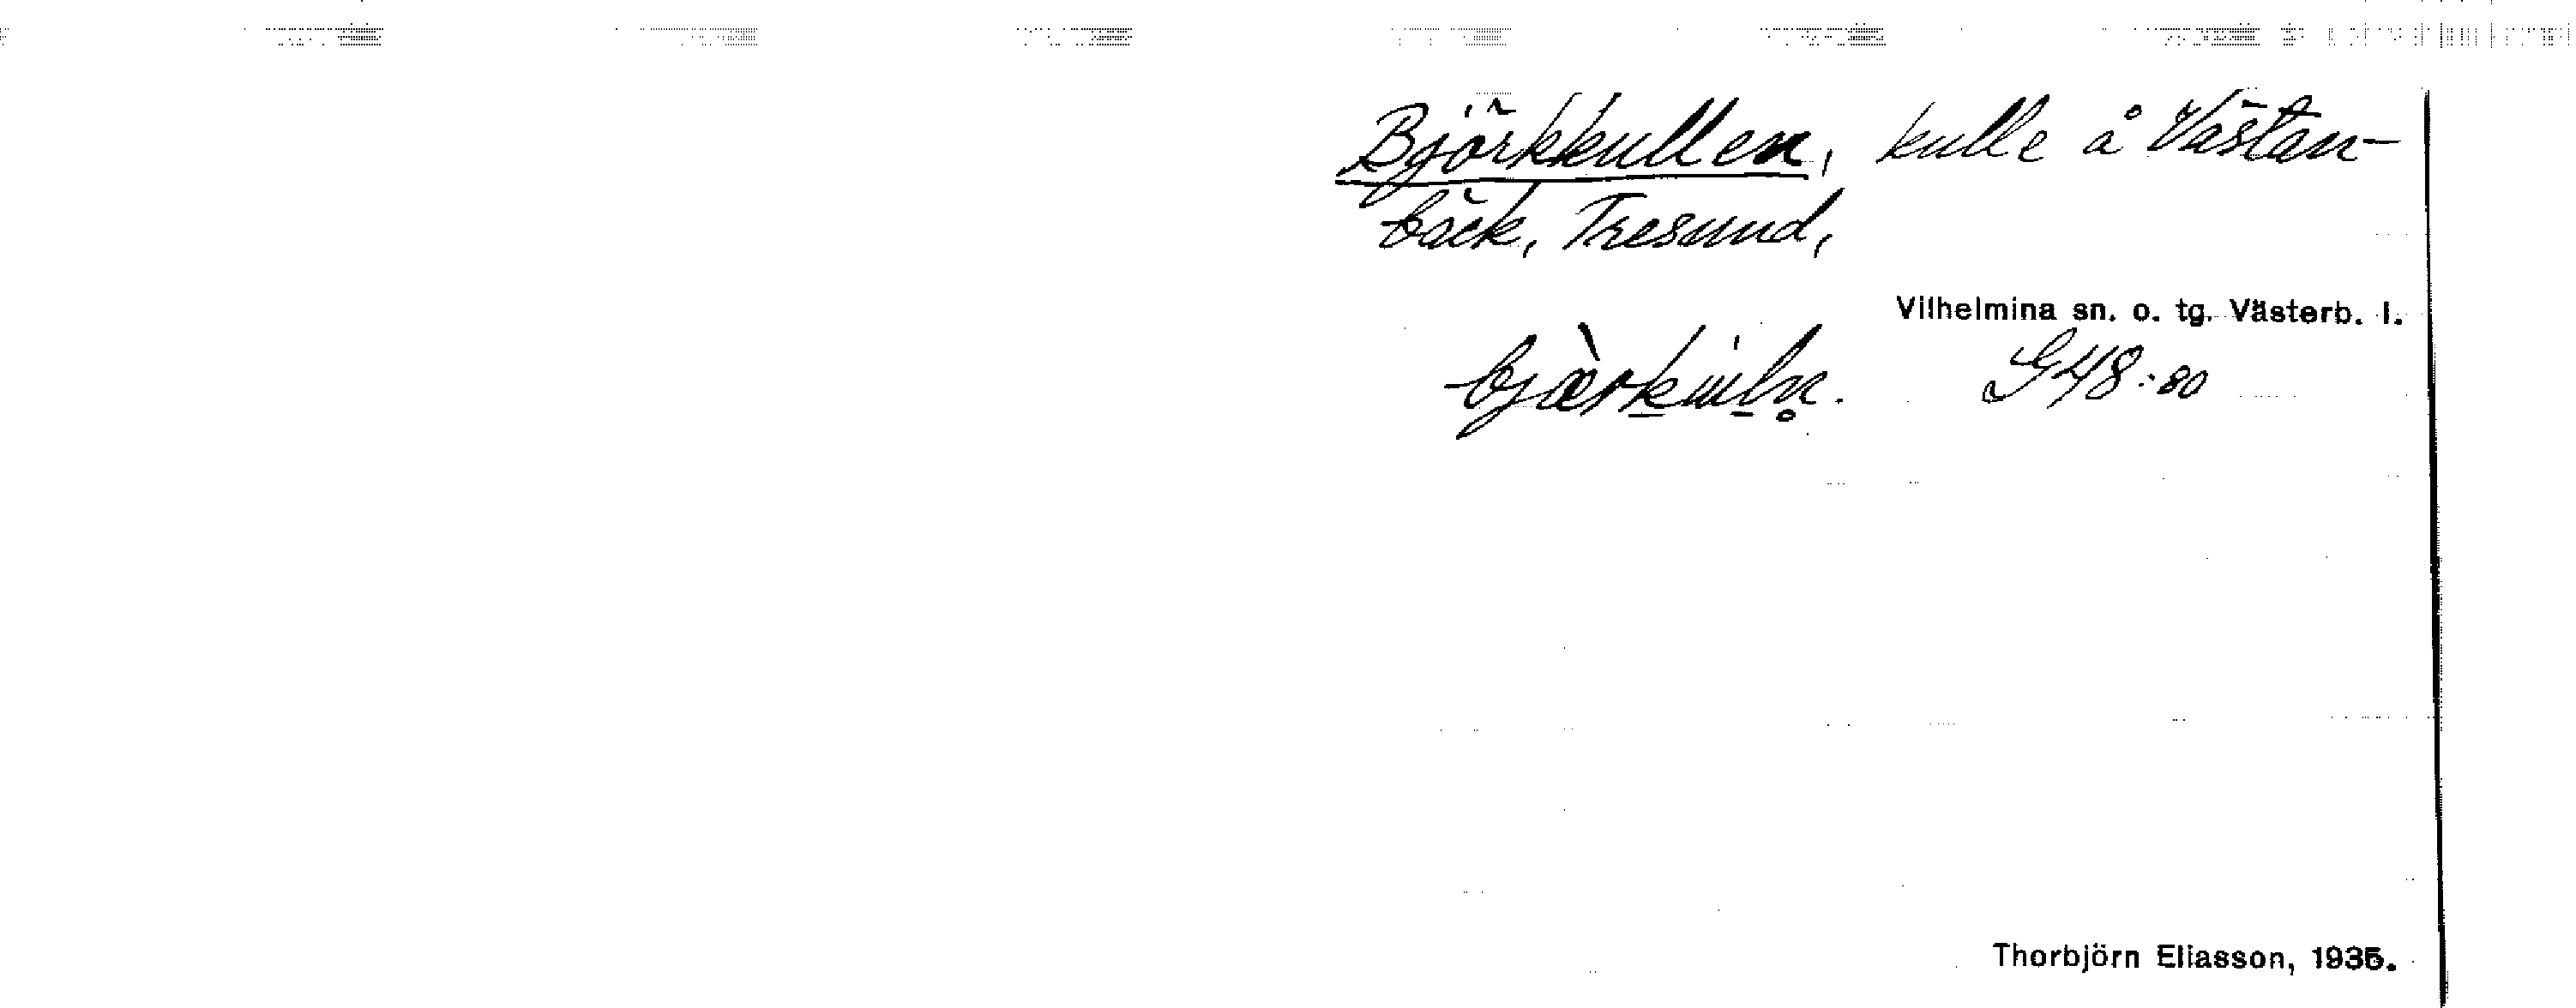 Björkkullen, kulle å Västan-
bäck, Tresund,
Vilhelmina sn. o. tg. Västerb. l.
G48:80
Thorbjörn Eliasson, 1935.